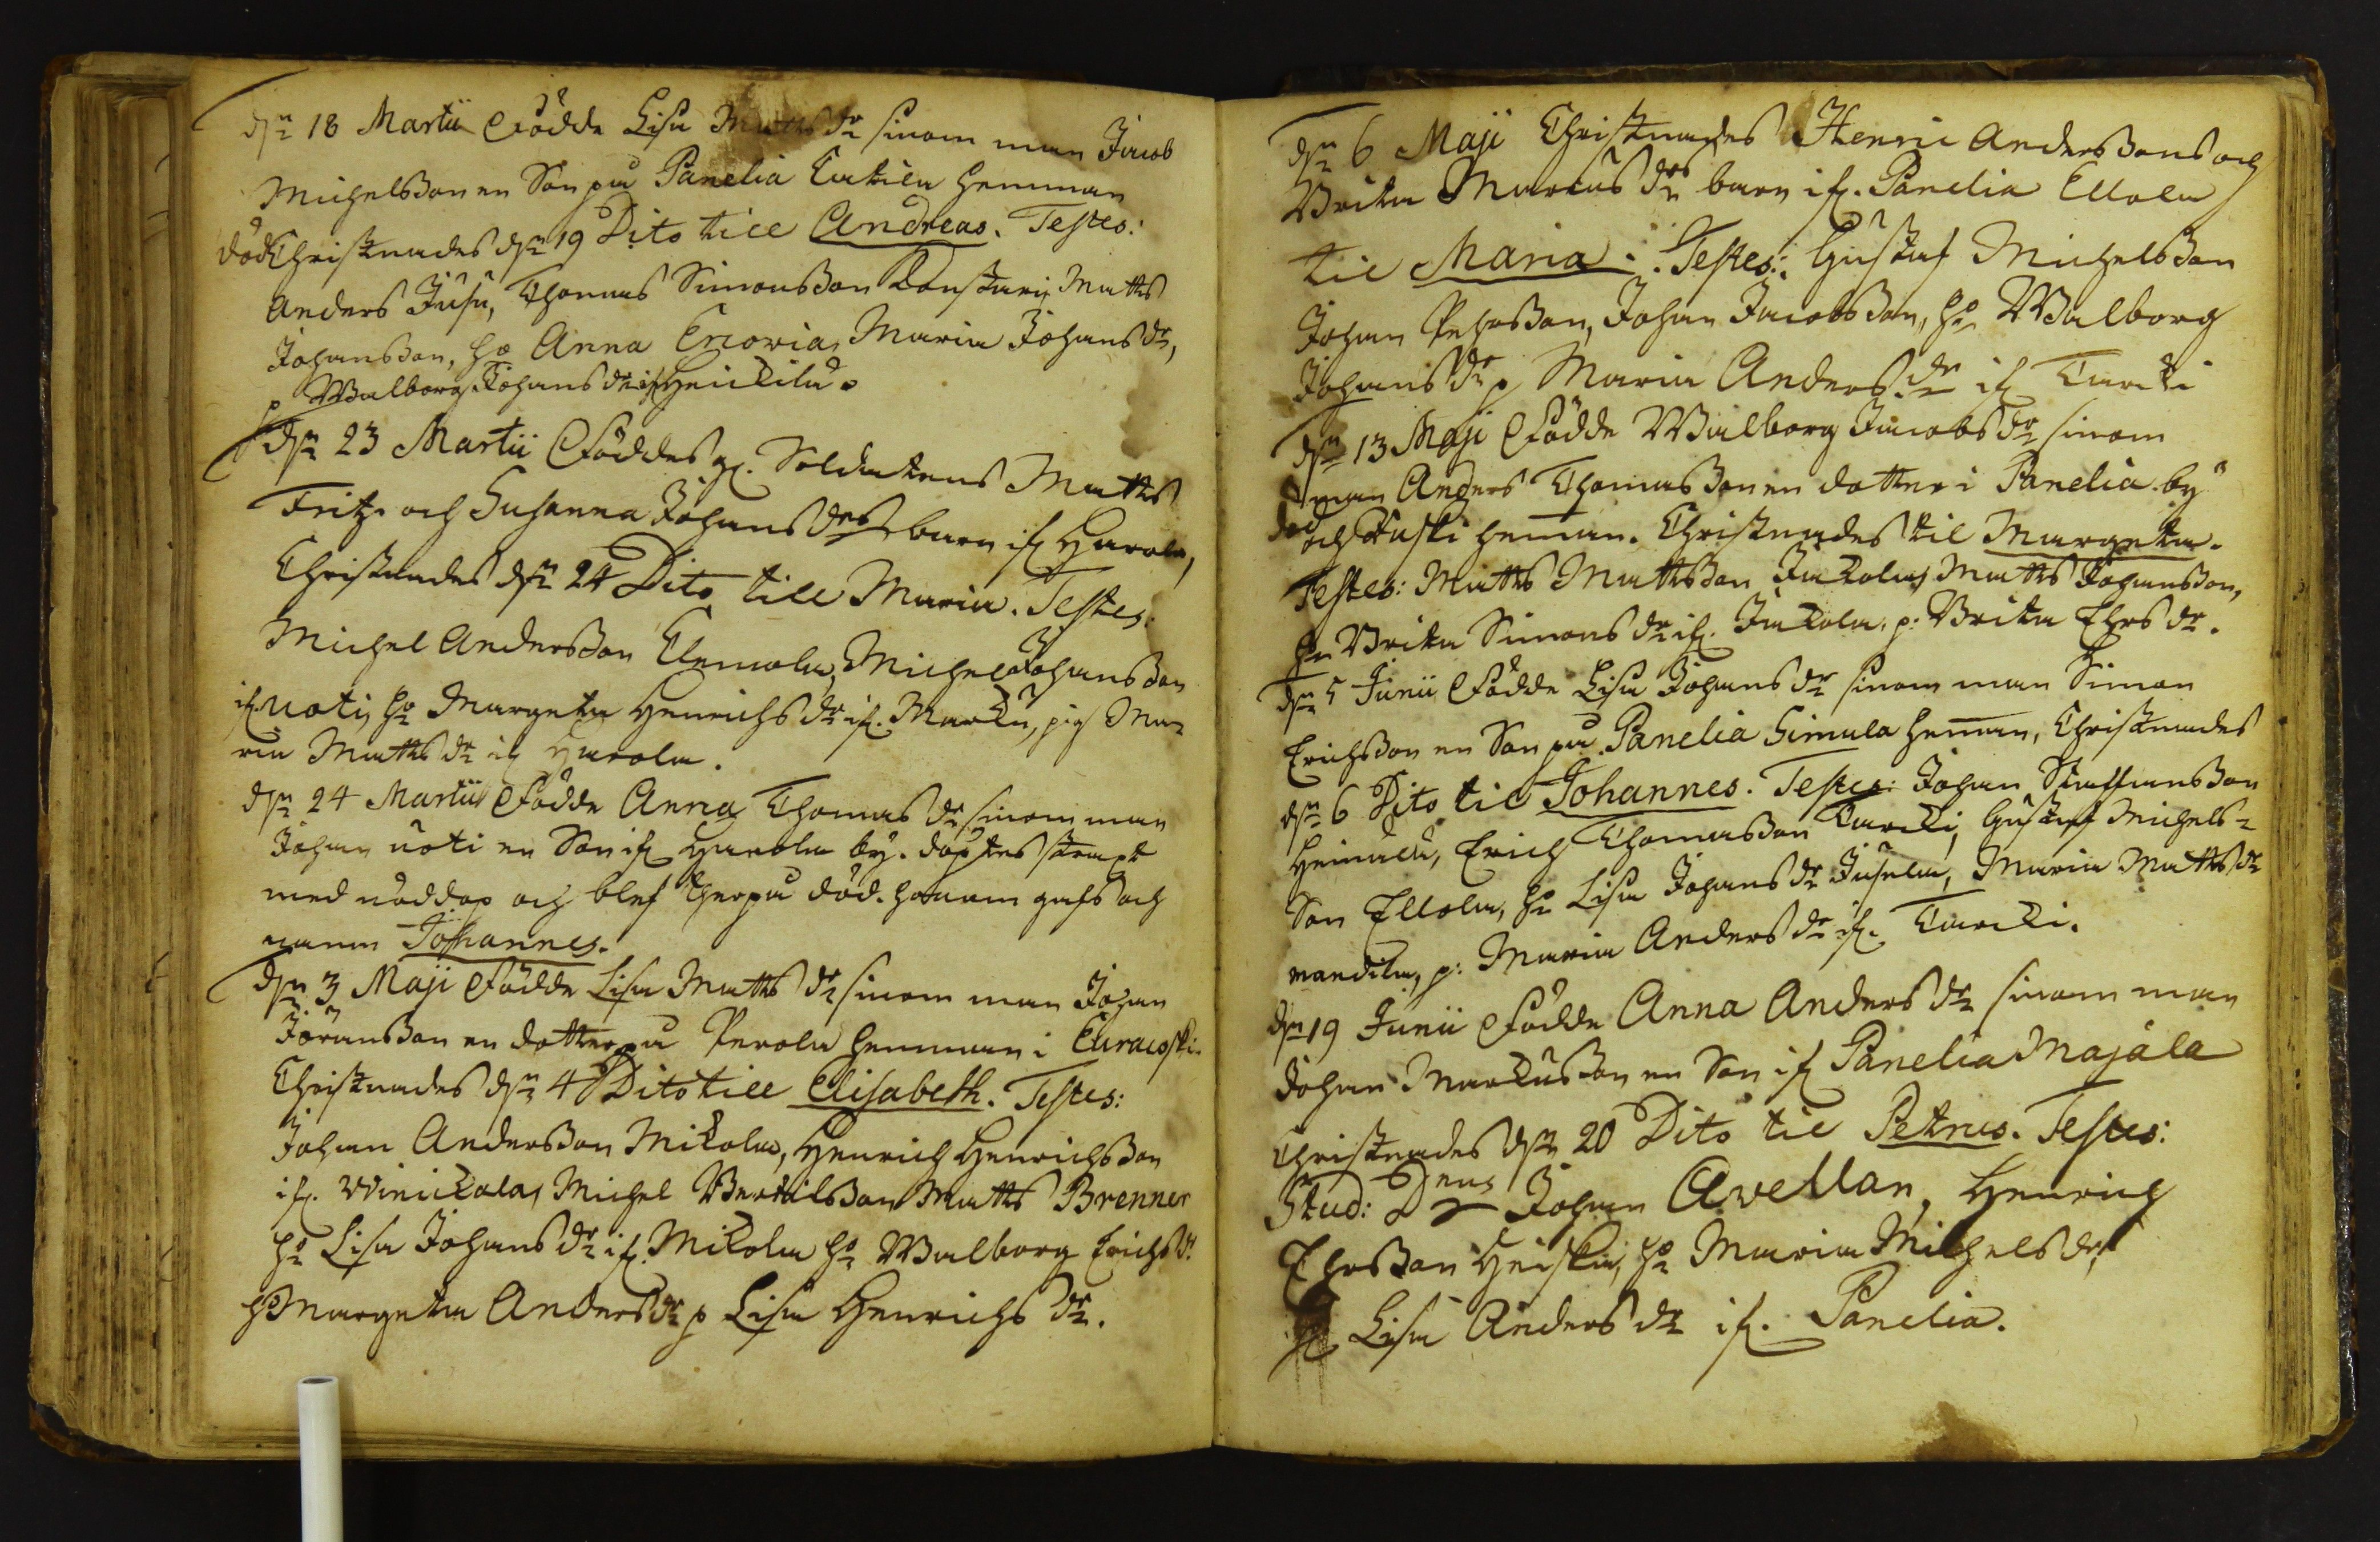 dn 18 Martii Födde Lisa Matts dr sinom man Jacob
Michelsson en Son på Panelia hemman
död Christnades dn 19 Dito till Andreas. Testes:
Anders Jusu, Thomas Simonsson Matts
Johansson, ho Anna Ericovia, Maria Johans dr,
p Walborg Johans dr if Heickilä.
dn 23 Martii Föddes Soldatens Matts
Fritz och Susanna Johans drs barn if Harola,
Christnades dn 24 Dito till Maria. Testes:
Michel Andersson Clemola, Michel Johansson
if. Uoti, ho Margeta Henrichs dr if. Marcku, pig Ma-
ria Matts dr if Harola.
dn 24 Martii Födde Anna Thomas dr sinom man
Johan Uoti en Son if Harola by. döptes strapt
med nöddop och blef therpå död. honom gafs och
namn Johannes.
dn 3 Maji Födde Lisa Matts dr sinom man Johan
Jöransson en dotter på Perola hemman i Euracoski.
Christnades dn 4 Dito till Elisabeth. Testes:
Johan Andersson Mikola, Henrich Henrichsson
if. Winickala, Michel Bertilsson Matts Brenner
ho Lisa Johans dr if. Mikola ho Walborg Erichs dr.
ho Margeta Anders dr p Lisa Henrichs dr.
dn 6 Maji Christnades Henric Anderssons och
Brita Marcus drs barn if. Panelia Ellola
til Maria. Testes: Gustaf Michelsson
Johan Pehrsson, Johan Jacobsson, ho Walborg
Johans dr p Maria Anders dr if Karcki
dn 13 Maji Födde Walborg Jacobs dr sinom
man Anders Thomasson en dotter i Panelia by
död och heman. Christnades til Margeta.
Testes: Matts Mattsson Jackola, Matts Johansson,
ho Brita Simons dr if. Jackola, p: Brita Ehrs dr.
dn 5 Junii Födde Lisa Johans dr sinom man Simon
Erichsson en Son på Panelia Simula heman, Christnades
dn 6 Dito til Johannes. Testes: Johan Staffansson
Heimala, Erich Thomasson Karcki, Gustaf Michels-
Son Ellola, ho Lisa Johans dr Jusela, Maria Matts dr
p: Maria Anders dr if. Karcki.
dn 19 Junii Födde Anna Anders dr sinom man
Johan Marcusson en Son if Panelia Majala
Christnades dn 20 Dito til Petrus. Testes:
Stud: Dn Johan Avellan, Henrich
Ehrsson Heiska, ho Maria Michels dr,
Lisa Anders dr if. Panelia.